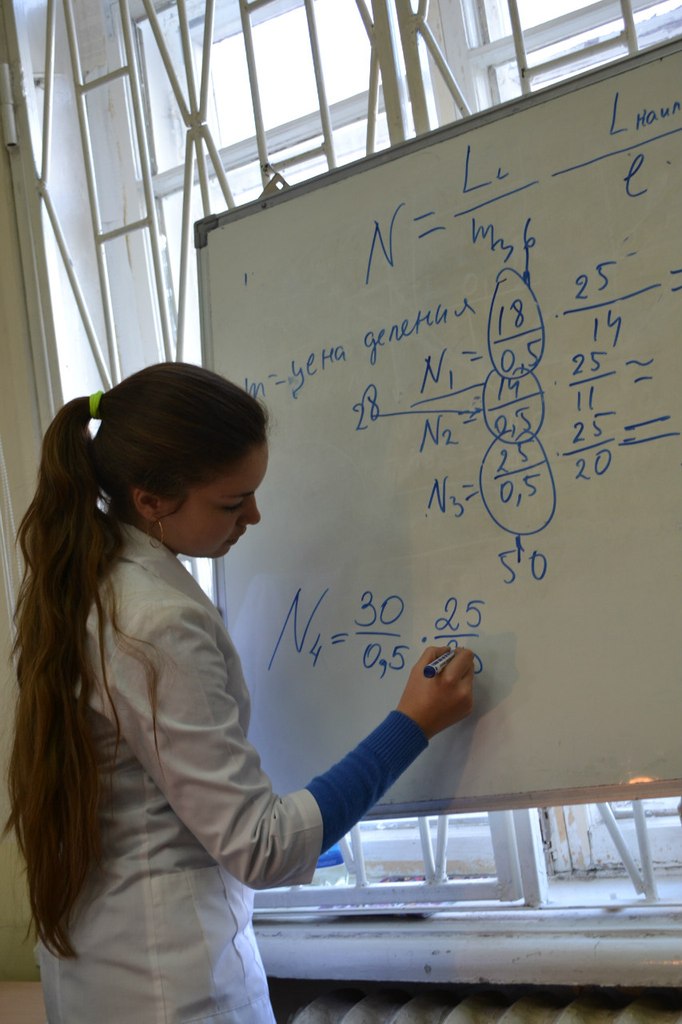 N = L / m · Lнаил / l
m = цена деления
N₁ = 18/0,5 · 25/14 =
28
N₂ = 14/0,5 · 25/11 ≈
N₃ = 25/0,5 · 25/20 =
50
N₄ = 30/0,5 · 25/